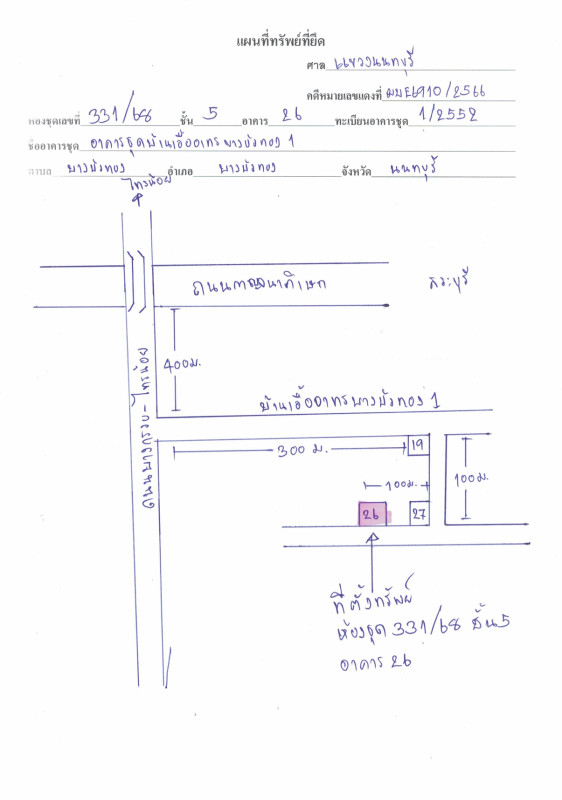 แผนที่ทรัพย์ที่ยึด
ศาล แขวงนนทบุรี
คดีหมายเลขแดงที่ ผบE6910/2566
ห้องชุดเลขที่ 331/68 ชั้น 5 อาคาร 26 ทะเบียนอาคารชุด 1/2552
ชื่ออาคารชุด อาคารชุดบ้านเอื้ออาทรบางบัวทอง 1
ตำบล บางบัวทอง อำเภอ บางบัวทอง จังหวัด นนทบุรี
ไทรน้อย
ถนนกาญจนาภิเษก
สระบุรี
400ม.
ถนนบางกรวย-ไทรน้อย
บ้านเอื้ออาทรบางบัวทอง 1
300 ม.
19
100ม.
100ม.
26
27
ที่ตั้งทรัพย์
ห้องชุด 331/68 ชั้น5
อาคาร 26